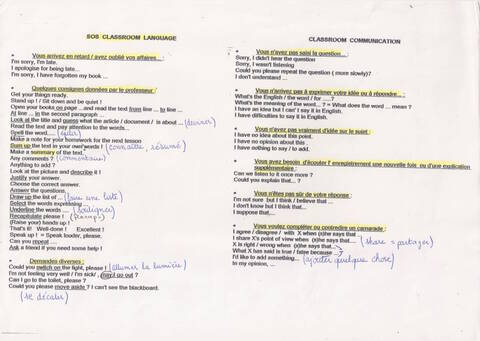 SOS CLASSROOM LANGUAGE
Vous arrivez en retard / avez oublié vos affaires... :
I'm sorry, I'm late.
I apologise for being late...
I'm sorry, I have forgotten my book ...
Quelques consignes données par le professeur :
Get your things ready.
Stand up ! / Sit down and be quiet !
Open your books on page ...and read the text from line ... to line ...
At line ... in the second paragraph ...
Look at the title and guess what the article / document / is about ... (deviner)
Read the text and pay attention to the words...
Spell the word.... (épeler)
Make a note for your homework for the next lesson
Sum up the text in your own words ! (connaître, résumé)
Make a summary of the text.
Any comments ? (commentaire)
Anything to add ?
Look at the picture and describe it !
Justify your answer.
Choose the correct answer.
Answer the questions.
Draw up the list of ... (faire une liste)
Select the words expressing ...
Underline the words ... (souligner)
Recapitulate please !
(Raise your hands) up !
That's it! Well-done ! Excellent !
Speak up ! = Speak louder, please.
Can you repeat ....
Ask a friend if you need some help !
Demandes diverses :
Could you switch on the light, please ! (allumer la lumière)
I'm not feeling very well / I'm sick/ , may I go out ?
Can I go to the toilet, please ?
Could you please move aside ? I can't see the blackboard.
(se décaler)
CLASSROOM COMMUNICATION
Vous n'avez pas saisi la question ... :
Sorry, I didn't hear the question
Sorry, I wasn't listening
Could you please repeat the question ( more slowly)?
I don't understand ...
Vous n'arrivez pas à exprimer votre idée ou à répondre... :
What's the English / the word / for ....?
What's the meaning of the word... ? = What does the word ... mean ?
I have an idea but I can't say it in English.
I have difficulties to say it in English.
Vous n'avez pas vraiment d'idée sur le sujet :
I have no idea about this point.
I have no opinion about this .
I have nothing to say / to add.
Vous avez besoin d'écouter l' enregistrement une nouvelle fois ou d'une explication
supplémentaire :
Can we listen to it once more ?
Could you explain that... ?
Vous n'êtes pas sûr de votre réponse :
I'm not sure but I think / believe that ...
I don't know but I think that...
I suppose that,...
Vous voulez compléter ou contredire un camarade :
I agree / disagree / with X when (s)he says that ...
I share X's point of view when (s)he says that.... (share = partager)
X is right / wrong when (s)he says that...
What X has said is true / false because ...
I'd like to add something... (ajouter quelque chose)
In my opinion, ...